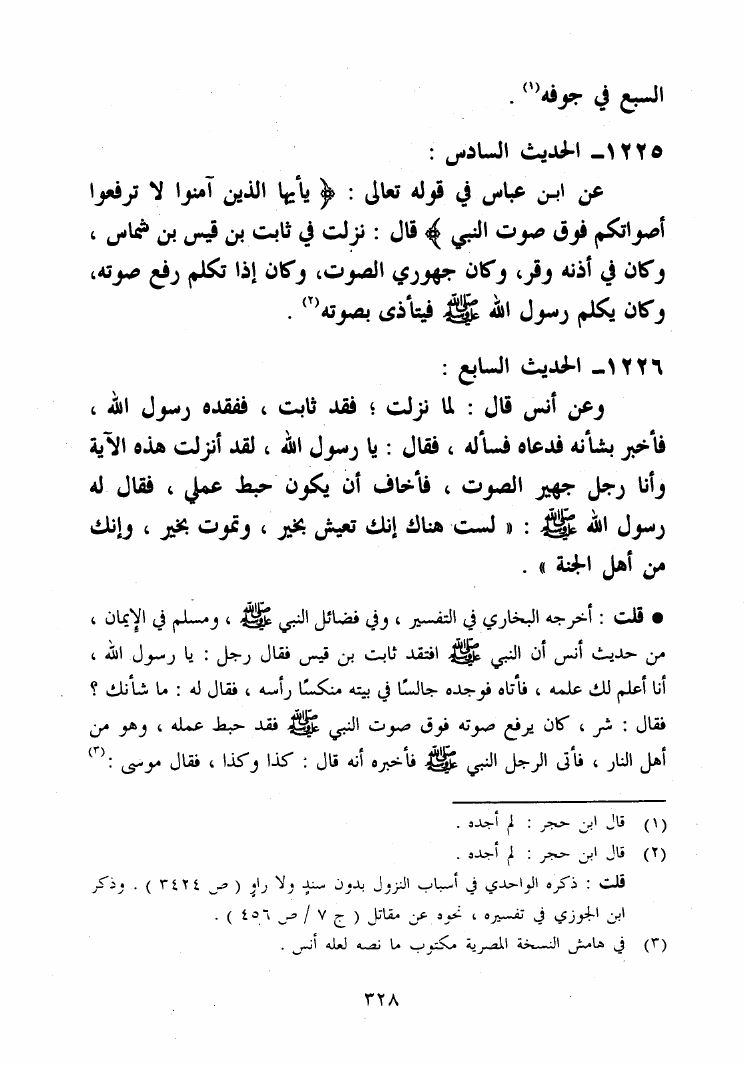 السبع في جوفه(١) .
١٢٢٥ــ الحديث السادس :
عن ابن عباس في قوله تعالى : ﴿ يأيها الذين آمنوا لا ترفعوا
أصواتكم فوق صوت النبي ﴾ قال : نزلت في ثابت بن قيس بن شماس ،
وكان في أذنه وقر، وكان جهوري الصوت، وكان إذا تكلم رفع صوته،
وكان يكلم رسول الله ﷺ فيتأذى بصوته(٢) .
١٢٢٦ــ الحديث السابع :
وعن أنس قال : لما نزلت ؛ فقد ثابت ، ففقده رسول الله ،
فأخبر بشأنه فدعاه فسأله ، فقال : يا رسول الله ، لقد أنزلت هذه الآية
وأنا رجل جهير الصوت ، فأخاف أن يكون حبط عملي ، فقال له
رسول الله ﷺ : « لست هناك إنك تعيش بخير ، وتموت بخير ، وإنك
من أهل الجنة » .
● قلت : أخرجه البخاري في التفسير ، وفي فضائل النبي ﷺ ، ومسلم في الإيمان ،
من حديث أنس أن النبي ﷺ افتقد ثابت بن قيس فقال رجل : يا رسول الله ،
أنا أعلم لك علمه ، فأتاه فوجده جالسًا في بيته منكسًا رأسه ، فقال له : ما شأنك ؟
فقال : شر ، كان يرفع صوته فوق صوت النبي ﷺ فقد حبط عمله ، وهو من
أهل النار ، فأتى الرجل النبي ﷺ فأخبره أنه قال : كذا وكذا ، فقال موسى :(٣)
(١) قال ابن حجر : لم أجده .
(٢) قال ابن حجر : لم أجده .
قلت : ذكره الواحدي في أسباب النزول بدون سندٍ ولا راوٍ ( ص ٣٤٢٤ ) . وذكر
ابن الجوزي في تفسيره ، نحوه عن مقاتل ( ج ٧ / ص ٤٥٦ ) .
(٣) في هامش النسخة المصرية مكتوب ما نصه لعله أنس .
٣٢٨